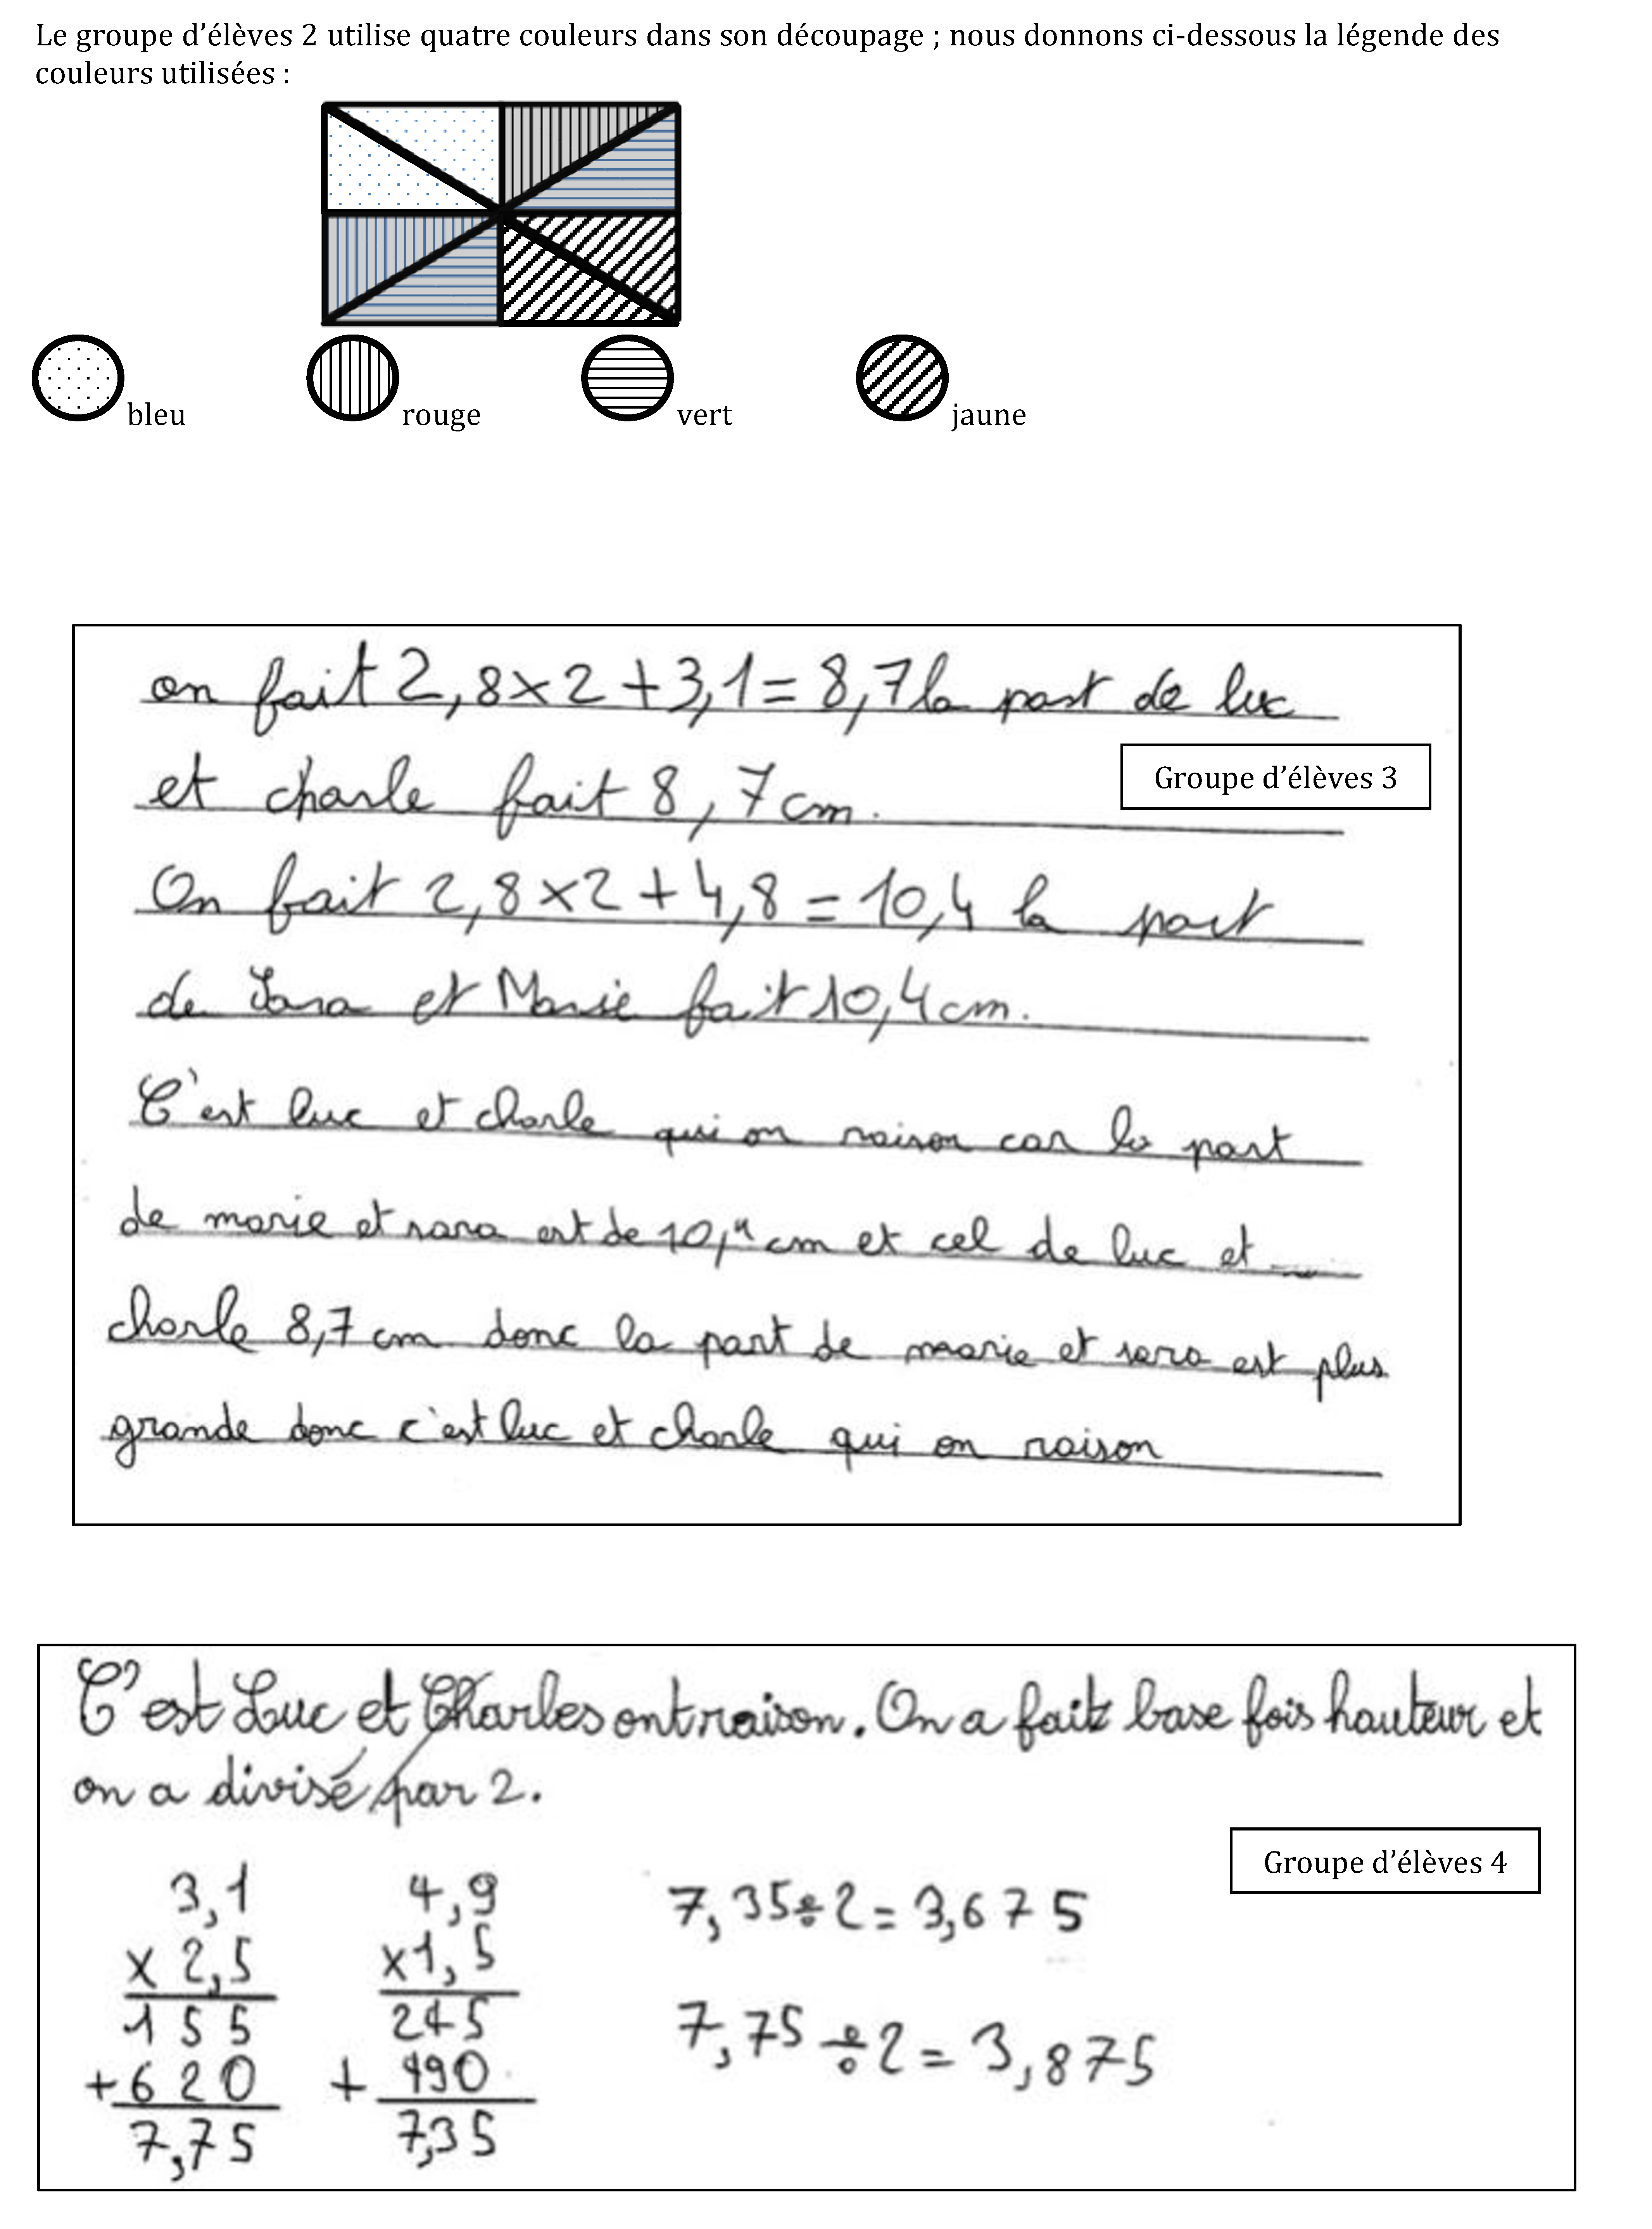 Le groupe d’élèves 2 utilise quatre couleurs dans son découpage ; nous donnons ci-dessous la légende des
couleurs utilisées :
bleu rouge vert jaune
on fait 2,8×2+3,1=8,7 la part de luc
et charle fait 8,7cm.
Groupe d’élèves 3
On fait 2,8×2+4,8=10,4 la part
de Sara et Marie fait 10,4cm.
C'est luc et charle qui on raison car la part
de marie et sara est de 10,4 cm et cel de luc et
charle 8,7 cm donc la part de marie et sara est plus
grande donc c'est luc et charle qui on raison
C'est Luc et Charles ont raison. On a fait base fois hauteur et
on a divisé par 2.
Groupe d’élèves 4
3,1 4,9 7,35÷2=3,675
x 2,5 x1,5
155 245 7,75÷2=3,875
+620 + 490
7,75 7,35